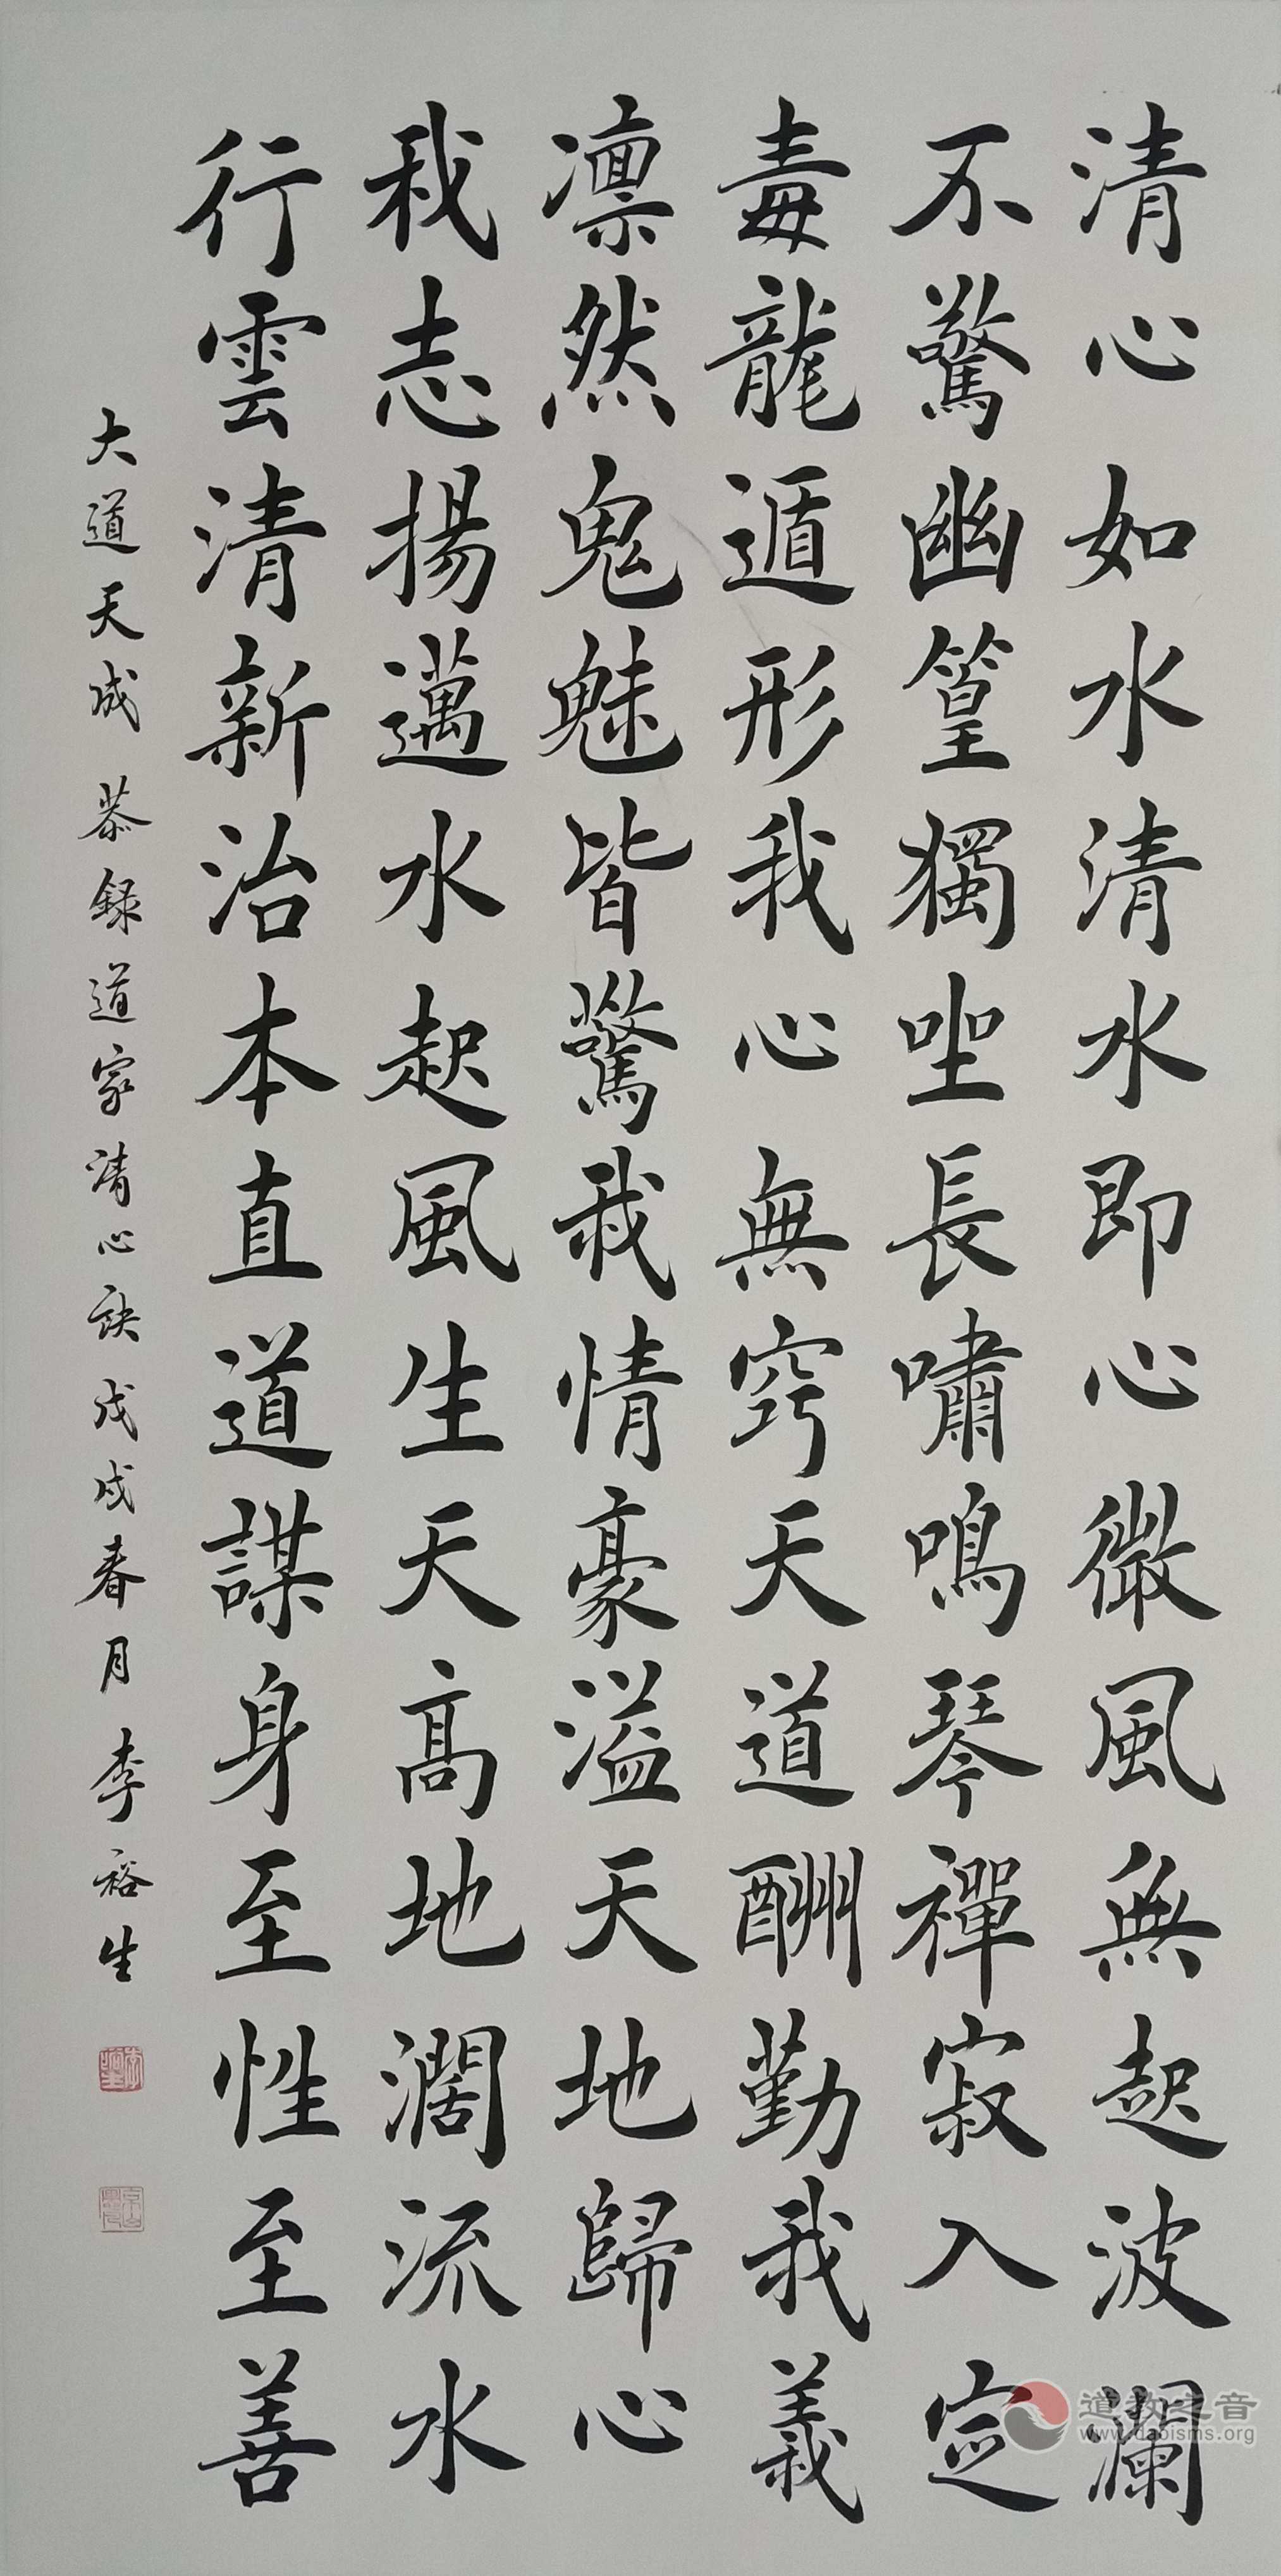 清心如水清水即心微風無起波瀾
不驚幽篁獨坐長嘯鳴琴禪寂入定
毒龍遁形我心無窮天道酬勤我義
凛然鬼魅皆驚我情豪溢天地歸心
我志揚邁水起風生天高地濶流水
行雲清新治本直道謀身至性至善
大道天成 恭録道家清心訣戊戌春月李裕生
道教之音
www.daoisms.org